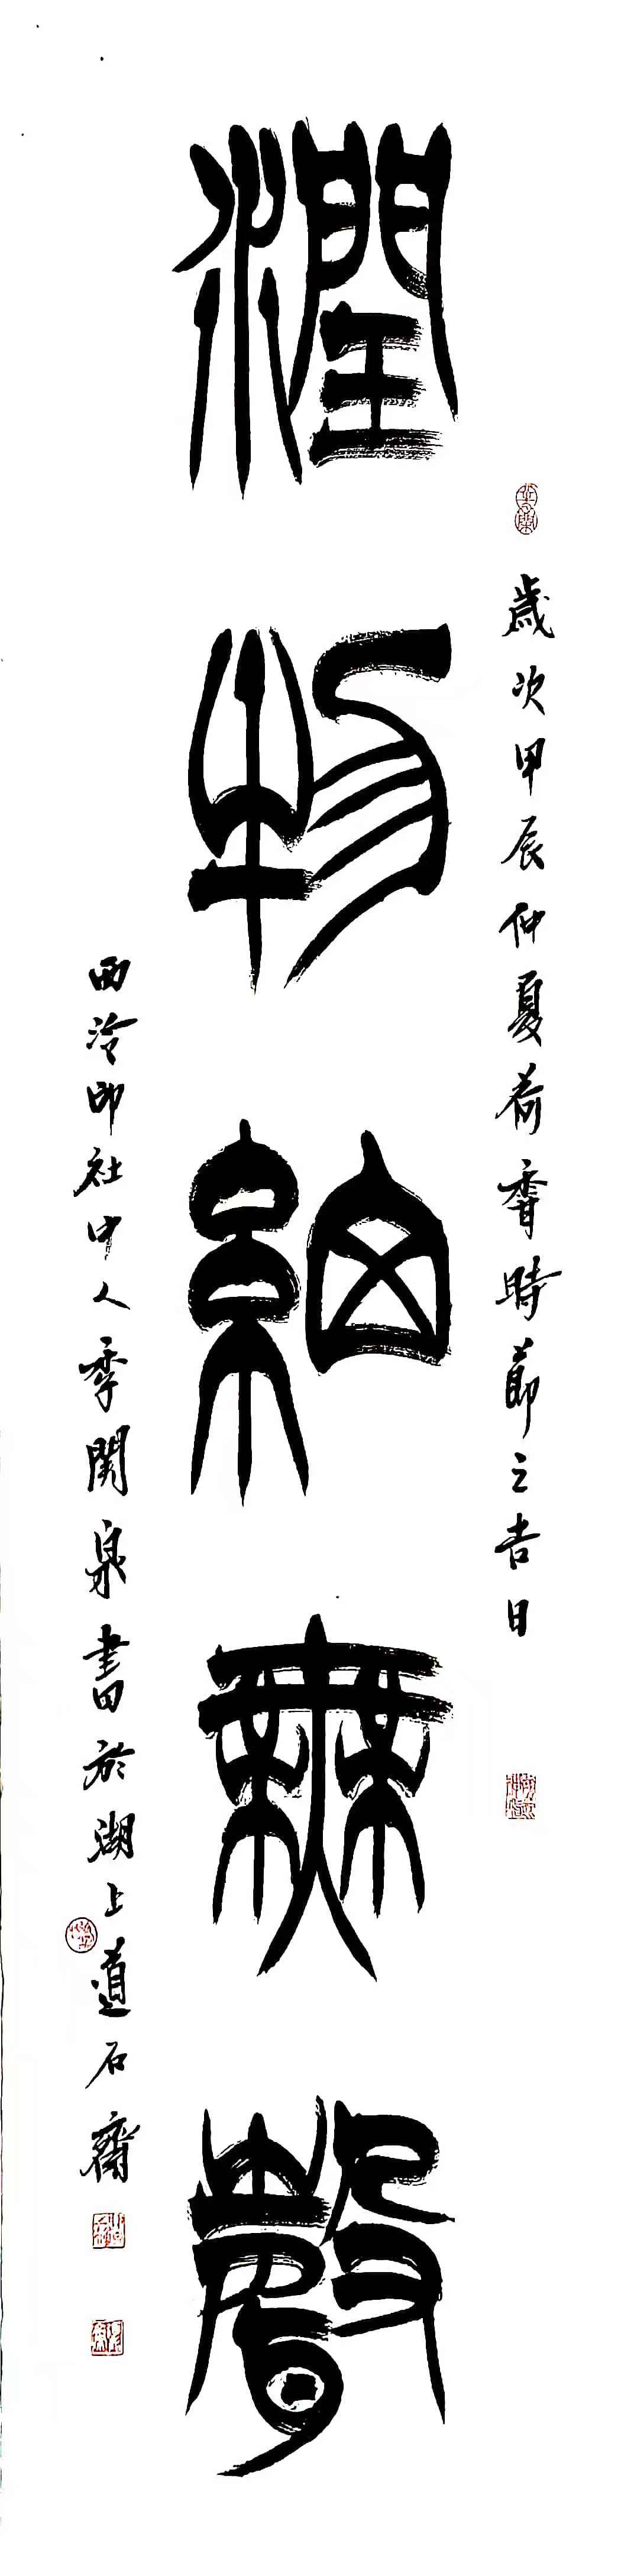 歲次甲辰仲夏荷香時節之吉日
潤物細無聲
西泠印社中人季關泉書於湖上道石齋